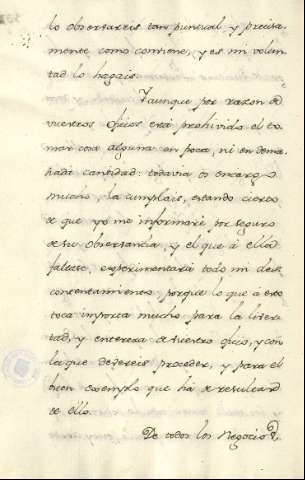 lo observareis tan puntual, y precisa-
mente como conviene, y es mi volun-
tad lo hagais.
Y aunque por razon de
vuestros oficios està prohivido el to-
mar cosa alguna en poca, ni en dema-
siada cantidad: todavia os encargo
mucho, la cumplais, estando ciertos
de que yo me informarè por seguro
de su observancia, y el que à ella
faltare, experimentarà todo mi des-
contentamiento; porque lo que à esto
toca importa mucho para la liver-
tad, y entereza de vuestro oficio, y con
la que deveis proceder, y para el
buen exemplo que hà de resultar
de ello.
De todos los Negocios